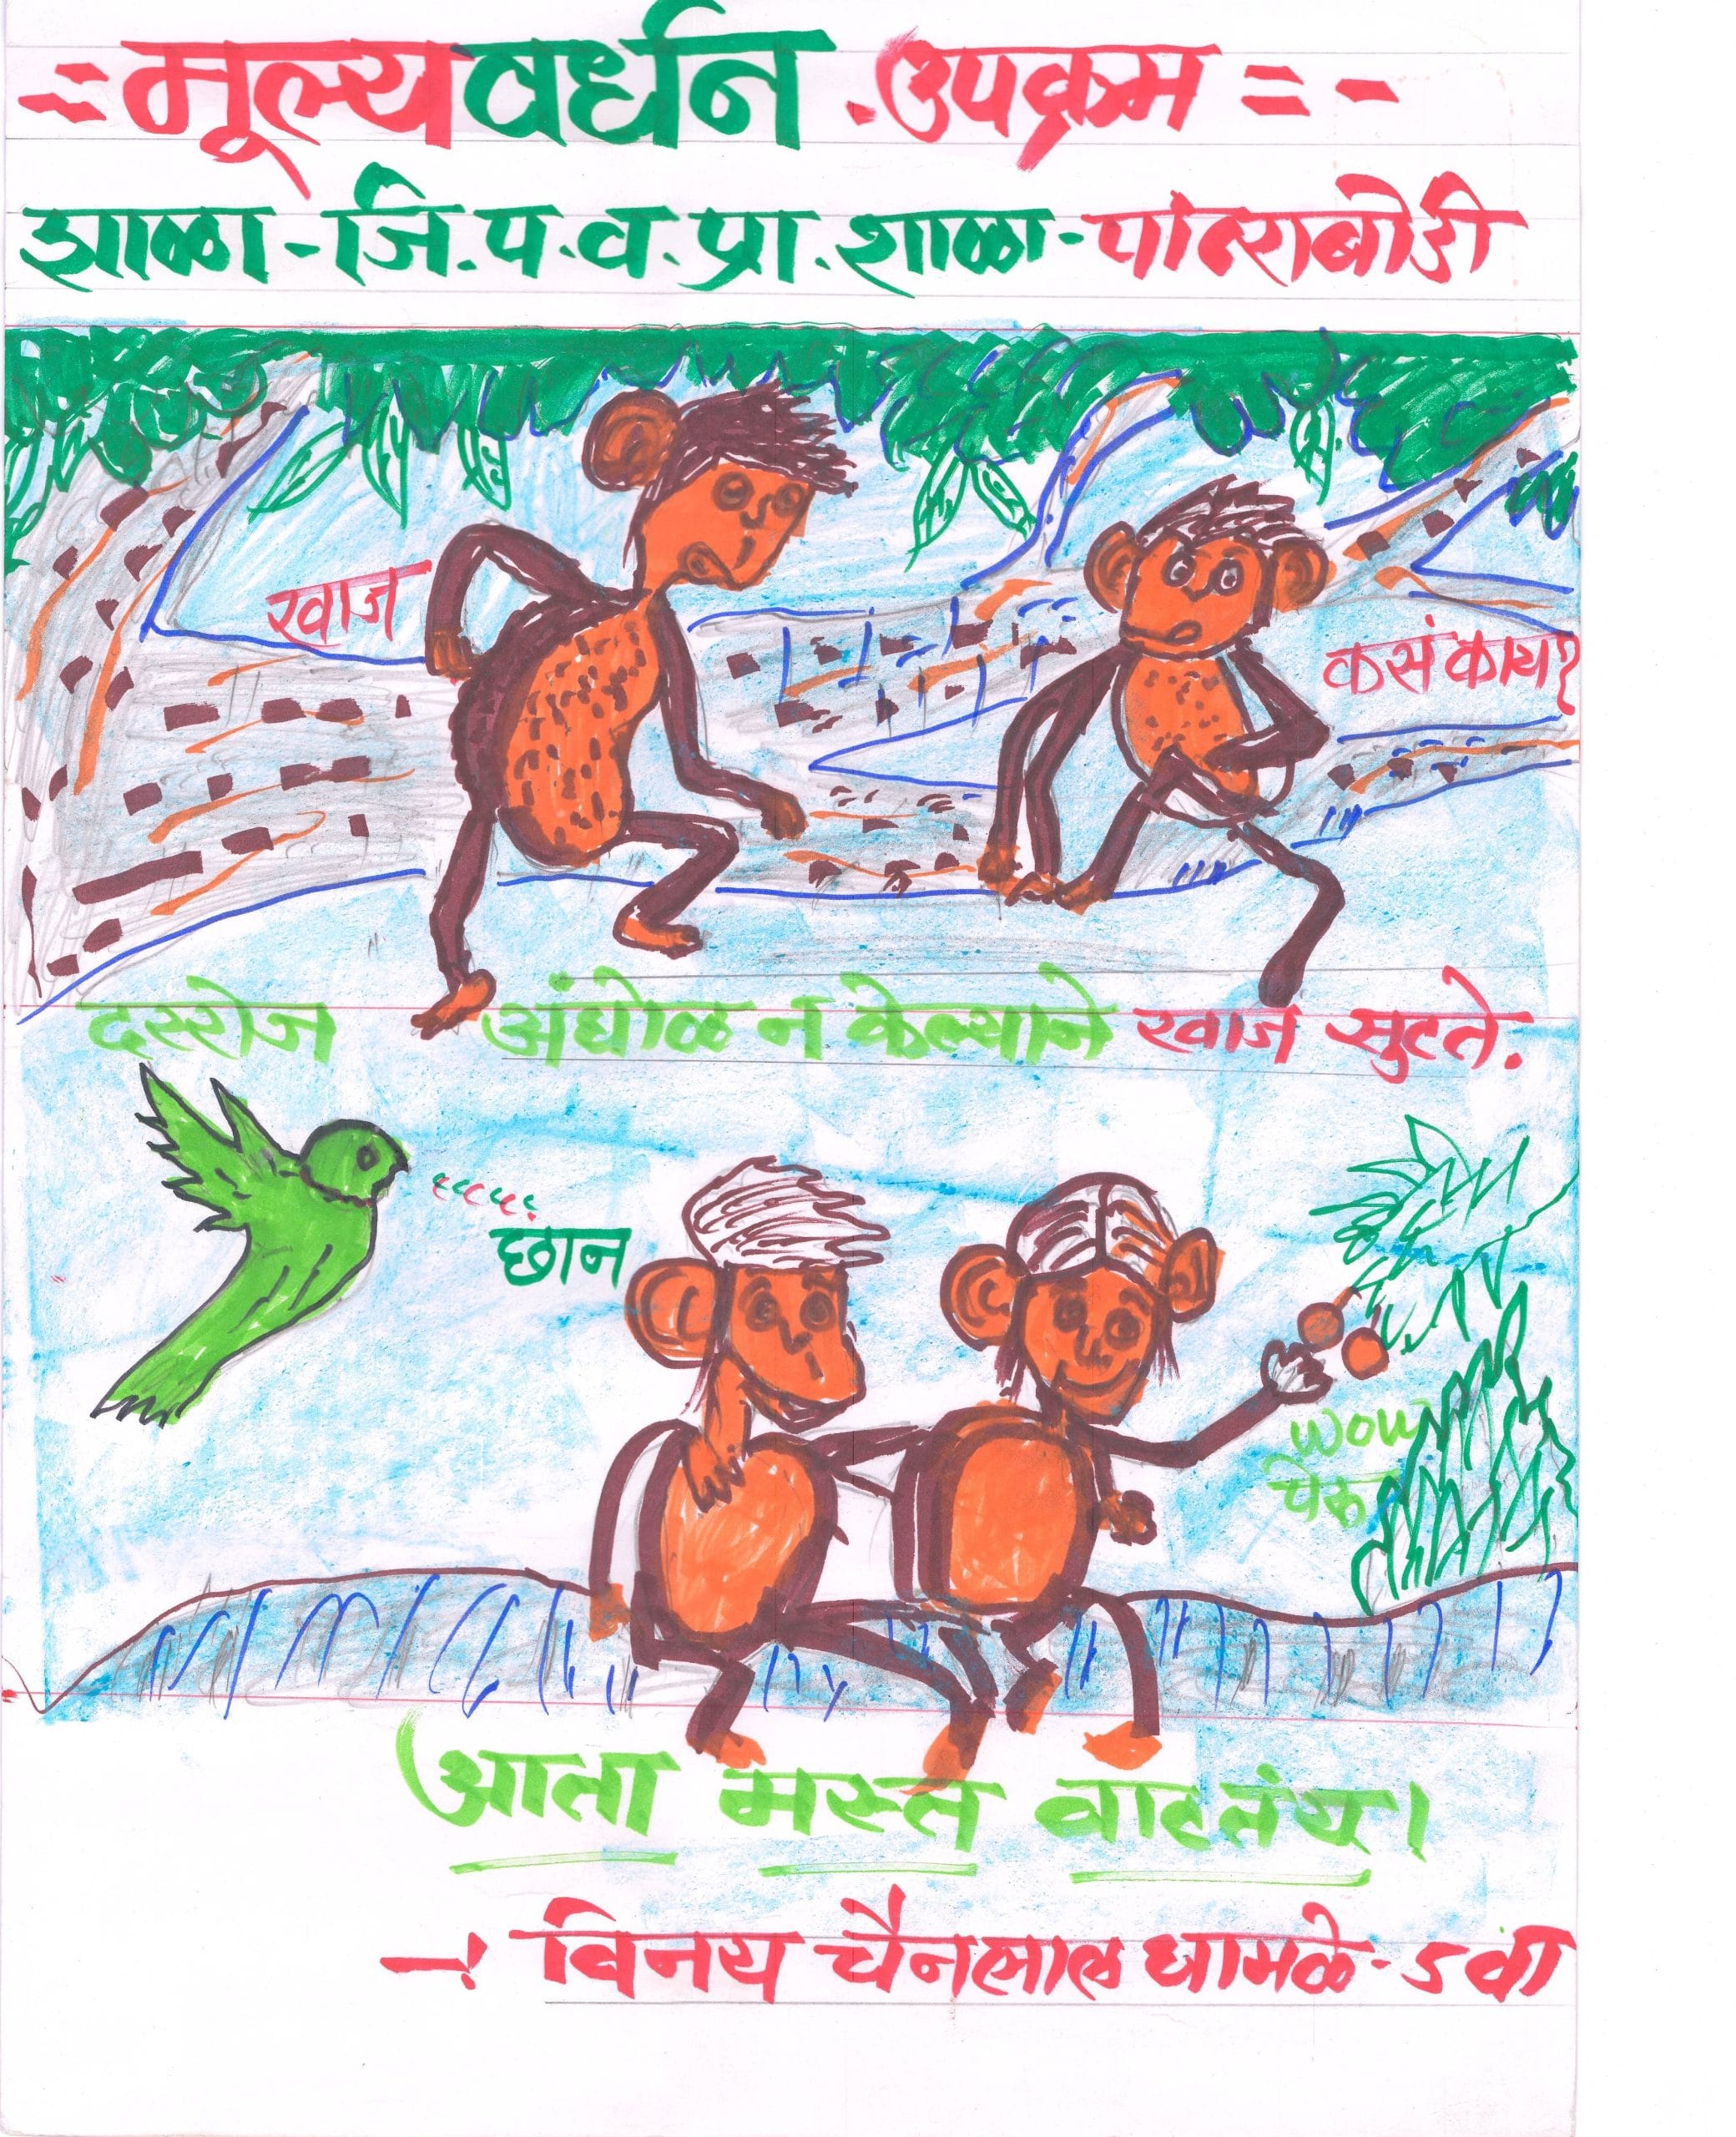 =मूल्यवर्धन उपक्रम=-
झाळा-जि.प.व.प्रा.शाळा-पांढराबोडी
खाज
कसं काय?
दररोज अंघोळ न केल्याने खाज सुटते.
छान
wow
पेरू
आता मस्त वाटतंय।
-! विनय चैनलाल धामळे-5वी